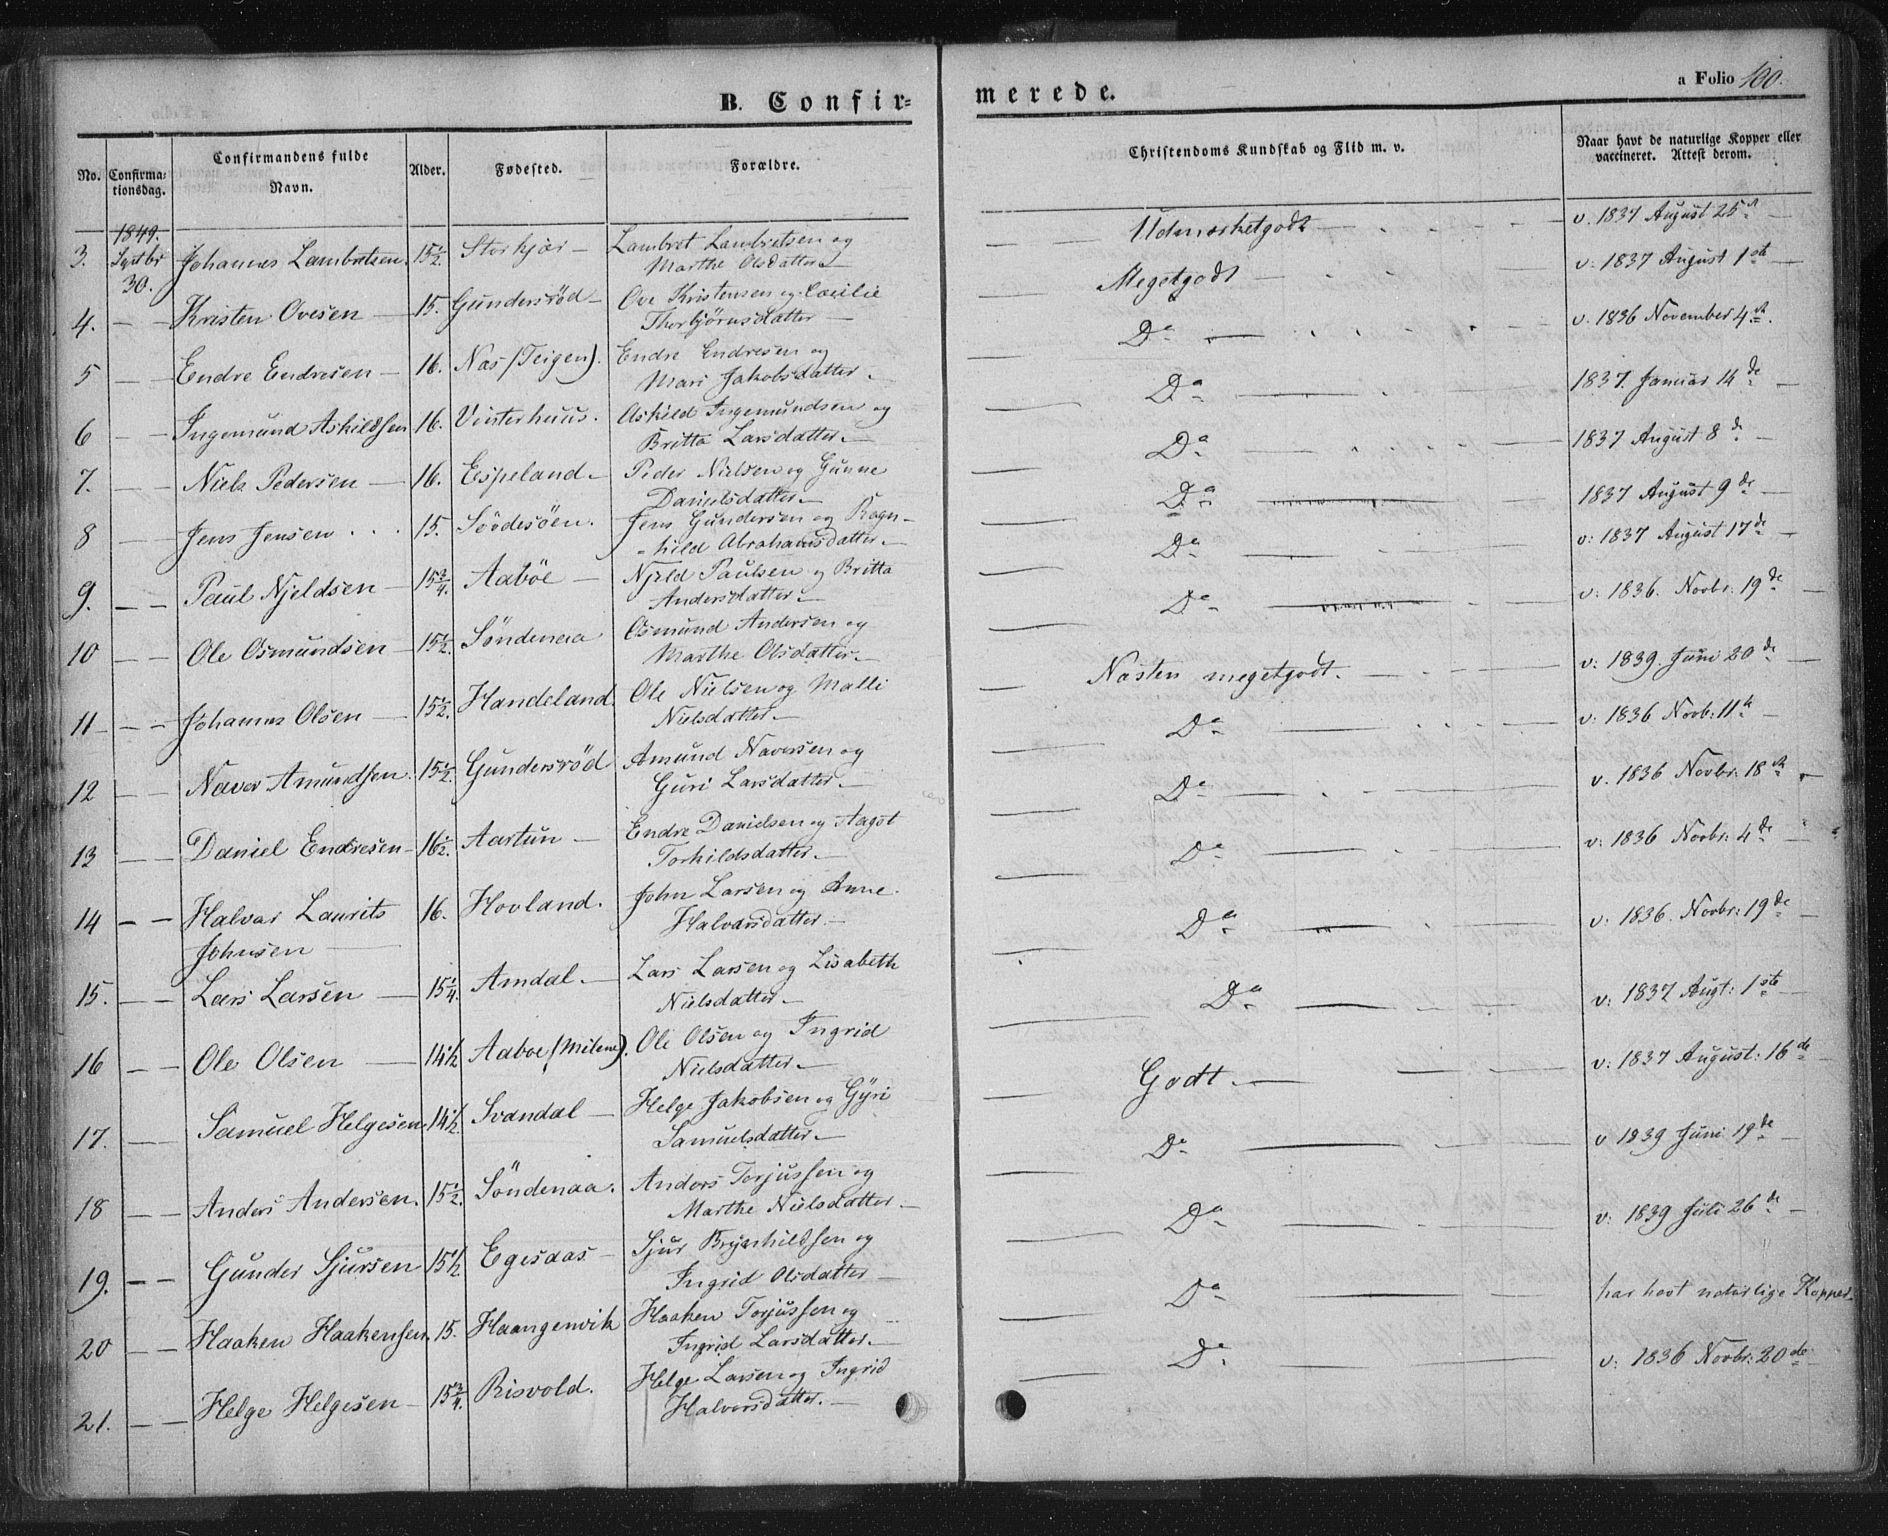 B. Confir=
merede.
a Folio 100.
No.
Confirma-
tionsdag.
Confirmandens fulde
Navn.
Alder.
Fødested.
Forældre.
Christendoms Kundskab og Flid m. v.
Naar havt de naturlige Kopper eller
vaccineret. Attest derom.
1849.
3. Septbr 30. Johannes Lambretsen. 15½ Storkjær — Lambret Lambretsen og
Marthe Olsdatter. — Udmærketgodt — v. 1837 August 25d
4. — — Kristen Ovesen — 15. Gundersröd — Ove Kristensen og Cecilie
Thorbjörnsdatter — Megetgodt — v: 1837 August 1ste —
5 — — Endre Endresen — 16. Næs (Teigen). Endre Endresen og
Mari Jakobsdatter. Do — v. 1836 November 4de.
6 — — Ingemund Askildsen 16. Vinterhuus. Askild Ingemundsen og
Britta Larsdatter. — Do — 1837. Januar 14de —
7. — — Niels Pedersen — 16. Espeland — Peder Nielsen og Gunne
Danielsdatter. — Do — 1837 August 8de —
8 — — Jens Jensen . . . 15. Sövdesöen. Jens Gundersen og Ragn-
-hild Abrahamsdatter. — Do — 1837 August 9de —
9. — — Paul Njeldsen — 15¾. Aaböe — Njeld Paulsen og Britta
Andersdatter. — Do — v: 1837 August 17de —
10 — — Ole Osmundsen — 15½. Söndenaa Osmund Andersen og
Marthe Olsdatter. — Do — v: 1836. Novbr: 19de —
11 — — Johannes Olsen — 15½. Handeland. Ole Nielsen og Malli
Nielsdatter. — Næsten megetgodt. — v: 1839. Juni 20de —
12 — — Naver Amundsen. 15½. Gundersröd Amund Naversen og
Guri Larsdatter. — Do — v: 1836 Novb: 11te —
13 — — Daniel Endresen — 16½. Aartun — Endre Danielsen og Aagot
Torkildsdatter. — Do — v. 1836 Novbr: 18de —
14 — — Halvar Laurits
Johnsen — 16. Hovland. John Larsen og Anne
Halvarsdatter. — Do — v: 1836 Novbr: 4de —
15. — — Lars Larsen — 15¼. Amdal. — Lars Larsen og Lisabeth
Nielsdatter. — Do — v: 1836. Novbr: 19de —
16 — — Ole Olsen — 14½ Aaboe (Milene). Ole Olsen og Ingrid
Nielsdatter. — Do — v: 1837 Augt: 1ste
17. — — Samuel Helgesen 14½. Svandal — Helge Jakobsen og Gÿri
Samuelsdatter. — Godt. — v: 1837 August: 16de
18 — — Anders Andersen. 15½. Söndenaa. Anders Torjussen og
Marthe Nielsdatter. — Do — v 1839 Juni 19de —
19. — — Gunder Sjursen 15½ Egesdas — Sjur Brynhildsen og
Ingrid Olsdatter — Do — v: 1839 Juli 26de —
20 — — Haaken Haakensen. 15. Haangenvik Haaken Torjussen og
Ingrid Larsdatter. — Do — har havt naturlige Kopper
21. — — Helge Helgesen — 15¾. Risvold. Helge Larsen og Ingrid
Halversdatter. — Do — v: 1836 Novbr: 20de